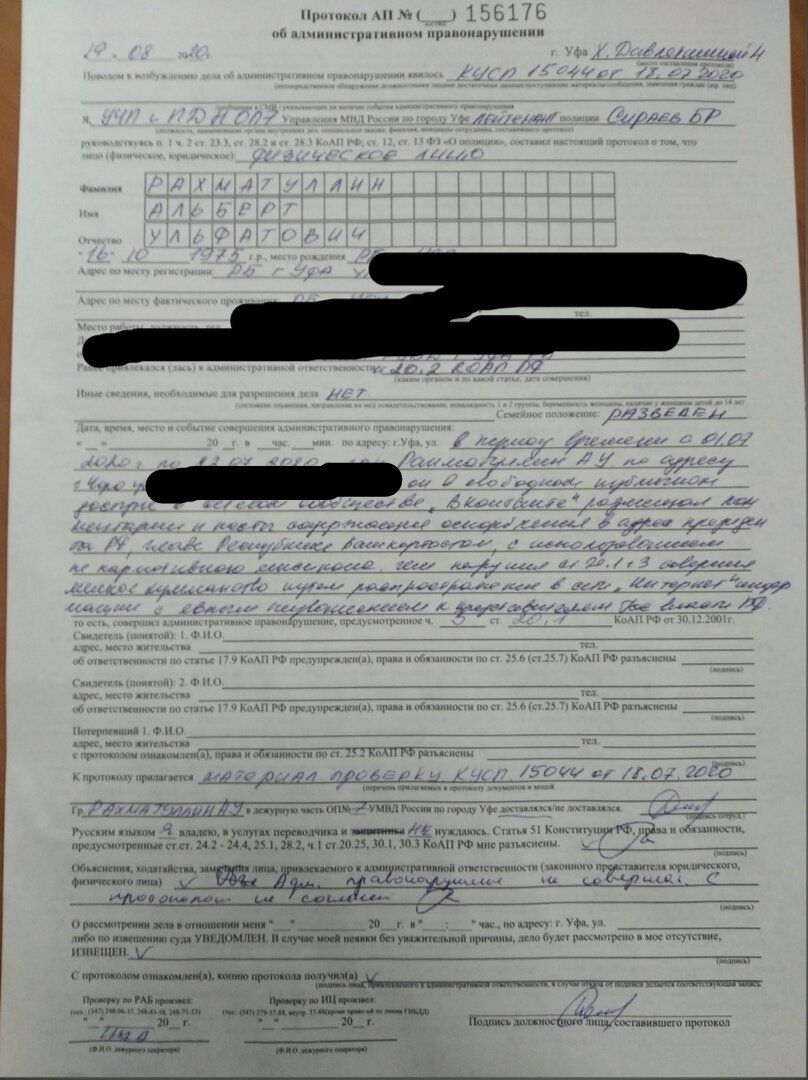 Протокол АП № (____) 156176
об административном правонарушении
19 " 08 2020г. г. Уфа Х. Давлетшиной
Поводом к возбуждению дела об административном правонарушении явилось КУСП 15044 от 18.07.2020
Я, УУП и ПДН ОП7 Управления МВД России по городу Уфе лейтенант полиции Сираев БР
(должность, наименование органа внутренних дел, специальное звание, фамилия, инициалы сотрудника, составившего протокол)
руководствуясь п. 1 ч. 2 ст. 23.3, ст. 28.2 и ст. 28.3 КоАП РФ; ст. 12, ст. 13 ФЗ «О полиции», составил настоящий протокол о том, что
лицо (физическое, юридическое): физическое лицо
Фамилия РАХМАТУЛЛИН
Имя АЛЬБЕРТ
Отчество УЛЬФАТОВИЧ
"16" 10 1975 г.р., место рождения РБ
Адрес по месту регистрации: РБ г Уфа
Адрес по месту фактического проживания:
тел.
Место работы, должность, тел.
Ранее привлекался (лась) к административной ответственности ст 20.2 КОАП РФ
(каким органом и по какой статье, дата совершения)
Иные сведения, необходимые для разрешения дела НЕТ
Семейное положение: РАЗВЕДЕН
Дата, время, место и событие совершения административного правонарушения:
" __ " ________ 20 __ г. в __ час. __ мин. по адресу: г.Уфа, ул. в период времени с 01.07
2020 г по 07 2020 А.У. по адресу
г.Уфа он в свободном публичном
доступе в сообществе "ВКонтакте" размещал ком
ментарии и посты содержащие оскорбления в адрес президен
та РФ, главе Республики Башкортостан, с использованием
чем нарушил ст 20.1 ч 3 совершил
мелкое хулиганство путем распространения в сети "Интернет" инфор
мации с явным неуважением к
то есть, совершил административное правонарушение, предусмотренное ч. 3 ст. 20.1 КоАП РФ от 30.12.2001г.
Свидетель (понятой): 1. Ф.И.О.
адрес, место жительства тел.
об ответственности по статье 17.9 КоАП РФ предупрежден(а), права и обязанности по ст. 25.6 (ст.25.7) КоАП РФ разъяснены
(подпись)
Свидетель (понятой): 2. Ф.И.О.
адрес, место жительства тел.
об ответственности по статье 17.9 КоАП РФ предупрежден(а), права и обязанности по ст. 25.6 (ст.25.7) КоАП РФ разъяснены
(подпись)
Потерпевший 1. Ф.И.О.
адрес, место жительства тел.
с протоколом ознакомлен(а), права и обязанности по ст. 25.2 КоАП РФ разъяснены
(подпись)
К протоколу прилагается МАТЕРИАЛ ПРОВЕРКИ КУСП 15044 от 18.07.2020
(перечень прилагаемых к протоколу документов и вещей
Гр. РАХМАТУЛЛИН АУ в дежурную часть ОП№ 7 УМВД России по городу Уфе доставлялся/не доставлялся.
(подпись сотруд.)
Русским языком Я владею, в услугах переводчика и защитника НЕ нуждаюсь. Статья 51 Конституции РФ, права и обязанности,
предусмотренные ст.ст. 24.2 - 24.4, 25.1, 28.2, ч.1 ст.20.25, 30.1, 30.3 КоАП РФ мне разъяснены.
Объяснения, ходатайства, замечания лица, привлекаемого к административной ответственности (законного представителя юридического,
физического лица) Адм. правонарушение не совершал. С
протоколом не согласен
(подпись)
О рассмотрении дела в отношении меня " __ " ________ 20 __ г. в " __ : __ " час., по адресу: г. Уфа, ул.
либо по извещению суда УВЕДОМЛЕН. В случае моей неявки без уважительной причины, дело будет рассмотрено в мое отсутствие,
ИЗВЕЩЕН.
(подпись)
С протоколом ознакомлен(а), копию протокола получил(а)
(подпись лица, привлекаемого к административной ответственности, в случае отказа от подписи делается соответствующая запись
Проверку по РАБ произвел: Проверку по ИЦ произвел:
" __ " ________ 20 __ г. " __ " ________ 20 __ г.
Подпись должностного лица, составившего протокол
(Ф.И.О. дежурного оператора) (Ф.И.О. дежурного оператора)